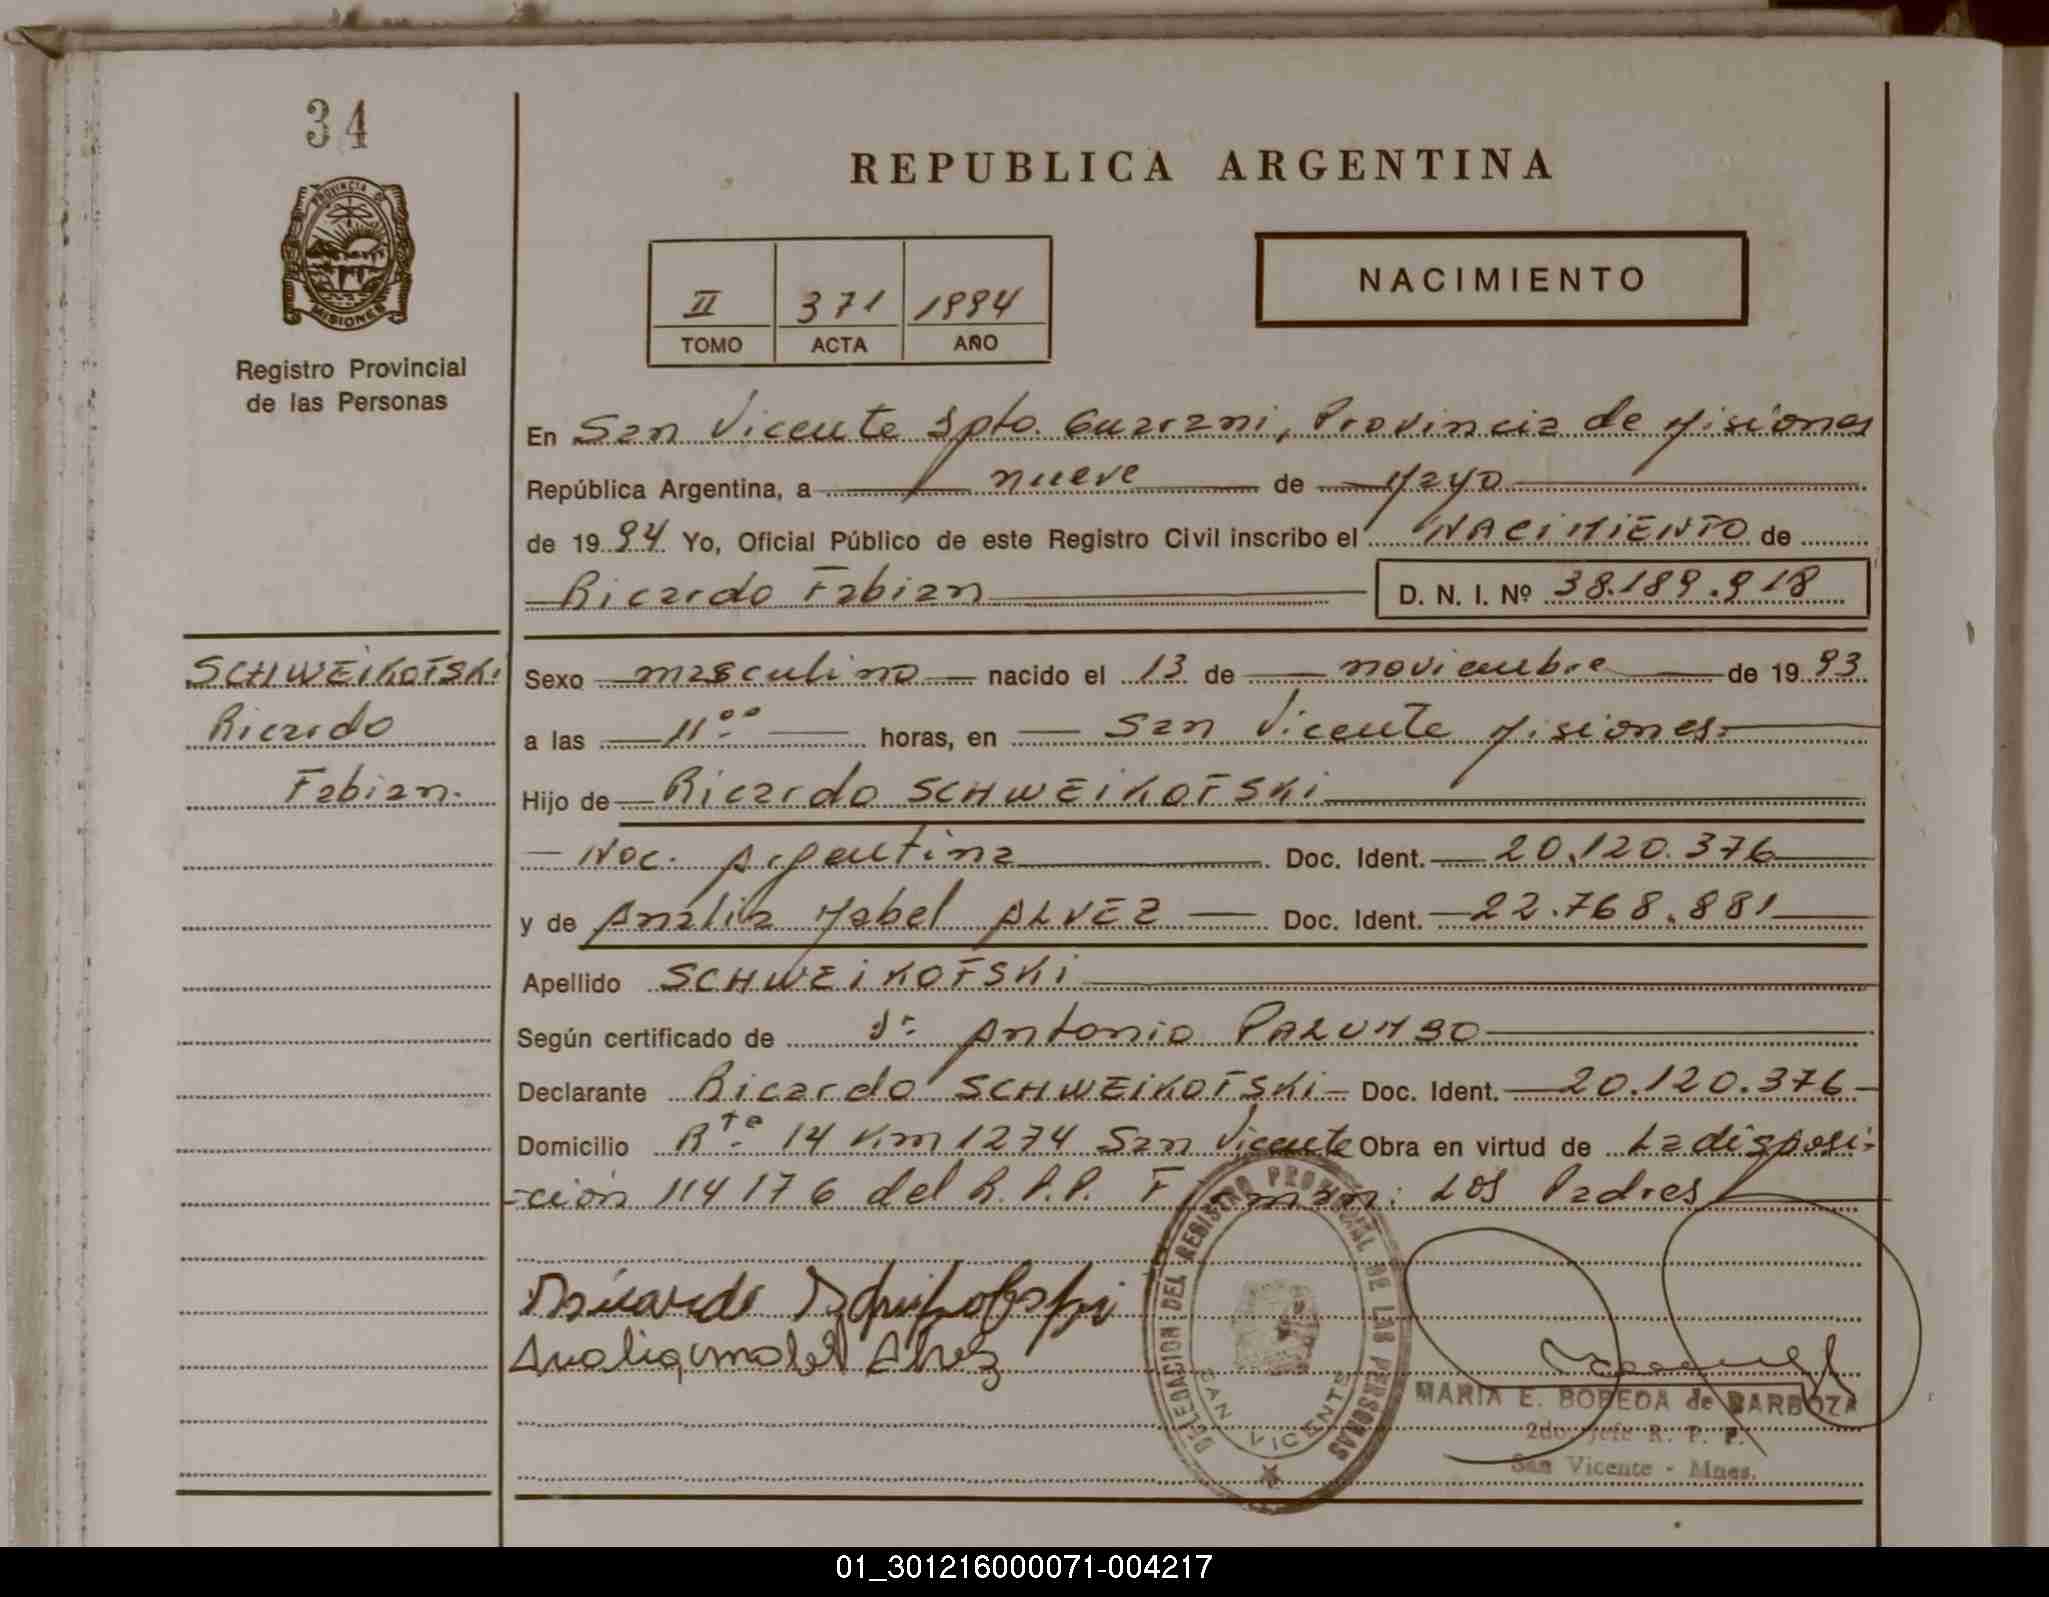 34
PROVINCIA DE
MISIONES
Registro Provincial
de las Personas
REPUBLICA ARGENTINA
II 371 1994
TOMO ACTA AÑO
NACIMIENTO
En San Vicente Dpto. Guarani, Provincia de Misiones
República Argentina, a nueve de Mayo
de 1994 Yo, Oficial Público de este Registro Civil inscribo el NACIMIENTO de
Ricardo Fabian D. N. I. Nº 38.189.918
SCHWEIKOFSKI
Ricardo
Fabian.
Sexo masculino nacido el 13 de noviembre de 1993
a las 11:00 horas, en San Vicente Misiones.
Hijo de Ricardo SCHWEIKOFSKI
Nac. Argentina Doc. Ident. 20.120.376
y de Analia Mabel ALVEZ Doc. Ident. 22.768.881
Apellido SCHWEIKOFSKI
Según certificado de Dr. Antonio PALUMBO
Declarante Ricardo SCHWEIKOFSKI Doc. Ident. 20.120.376
Domicilio Rta. 14 Km 1274 San Vicente Obra en virtud de La disposi-
-ción 114176 del R.P.P. Firman: Los Padres
Ricardo
Analia mabel Alvez
DELEGACION DEL REGISTRO PROVINCIAL DE LAS PERSONAS
SAN VICENTE
MARIA E. BOBEDA de BARBOZA
2do. Jefe R. P. P.
San Vicente - Mnes.
01_301216000071-004217